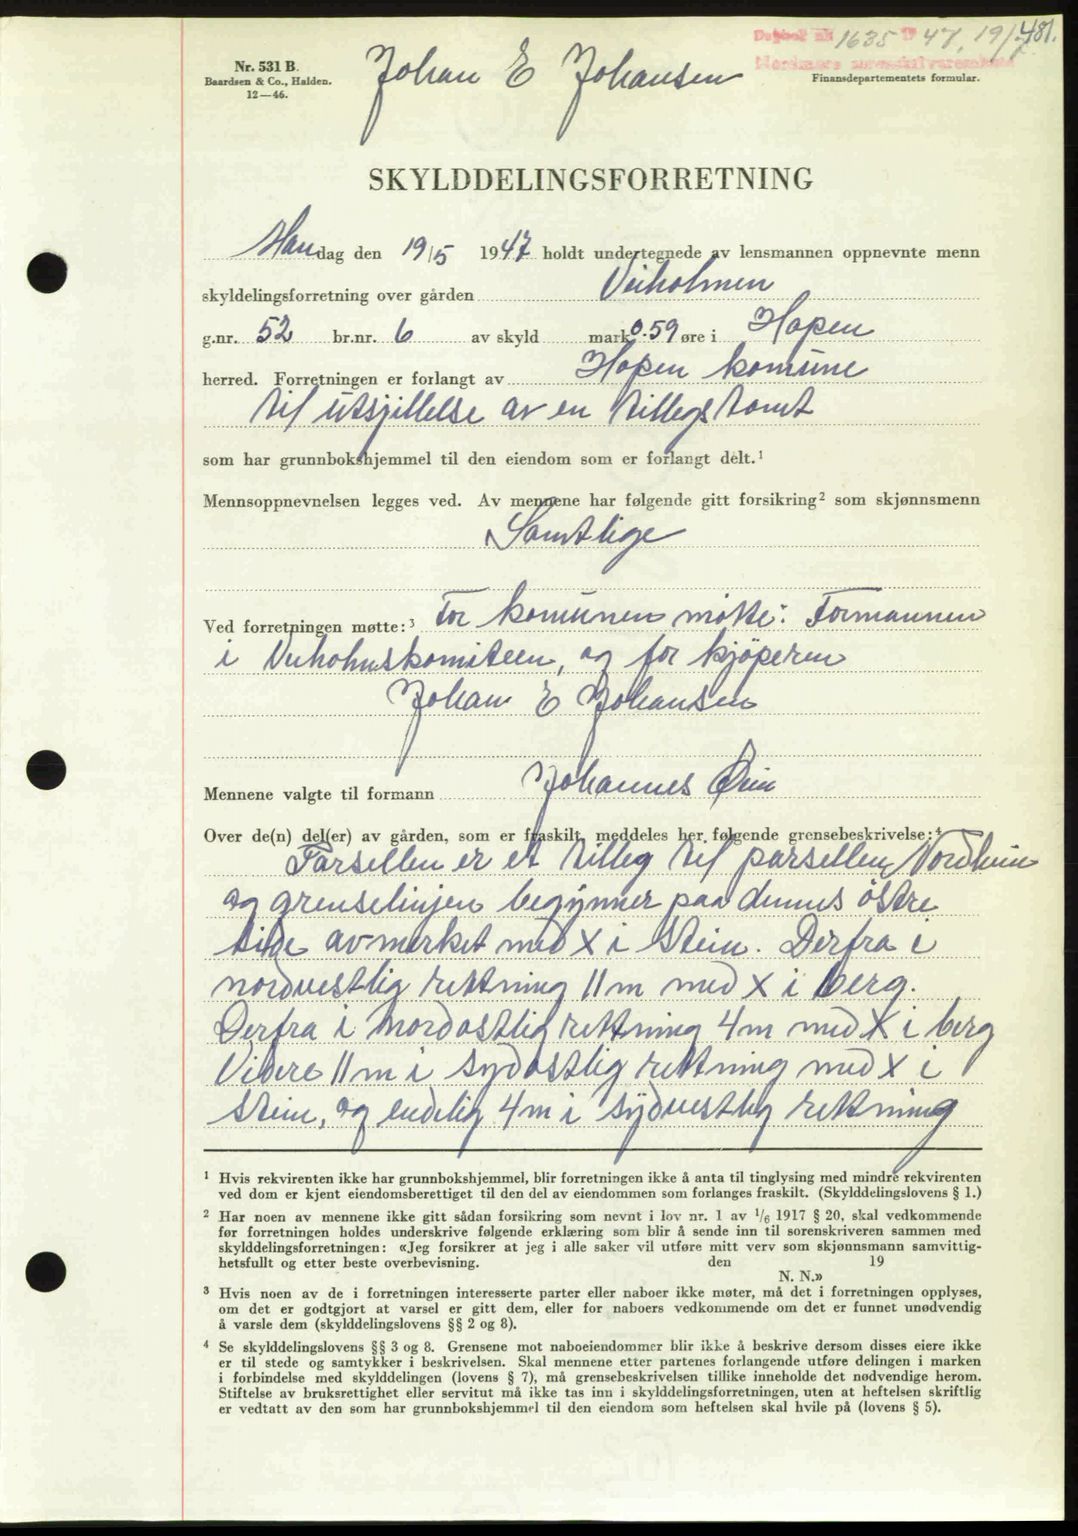 Dagbok nr. 1635 19 47, 19/7. 481.
Nordmøre sorenskriverembete
Nr. 531 B.
Baardsen & Co., Halden.
12—46.
Johan E Johansen
Finansdepartementets formular.
SKYLDDELINGSFORRETNING
Mandag den 19/5 1947 holdt undertegnede av lensmannen oppnevnte menn
skyldelingsforretning over gården Veiholmen
g.nr. 52 br.nr. 6 av skyld mark 0.59 øre i Hopen
herred. Forretningen er forlangt av Hopen komune
til utsjillelse av en tillegstomt
som har grunnbokshjemmel til den eiendom som er forlangt delt.¹
Mennsoppnevnelsen legges ved. Av mennene har følgende gitt forsikring² som skjønnsmenn
Samtlige
Ved forretningen møtte:³ For komunen møtte: Formannen
i Veiholmskomiteen, og for kjöperen
Johan E Johansen
Mennene valgte til formann Johannes Øien
Over de(n) del(er) av gården, som er fraskilt, meddeles her følgende grensebeskrivelse:⁴
Parsellen er et tilleg til parsellen Nordheim
og grenselinjen begynner paa dennes östre
side avmerket med X i Stein. Derfra i
nordvestlig rettning 11 m med X i berg.
Derfra i nordostlig rettning 4 m med X i berg
Videre 11 m i sydostlig rettning med X i
stein, og endelig 4 m i sydvestlig rettning
¹ Hvis rekvirenten ikke har grunnbokshjemmel, blir forretningen ikke å anta til tinglysing med mindre rekvirenten
ved dom er kjent eiendomsberettiget til den del av eiendommen som forlanges fraskilt. (Skylddelingslovens § 1.)
² Har noen av mennene ikke gitt sådan forsikring som nevnt i lov nr. 1 av ¹/₆ 1917 § 20, skal vedkommende
før forretningen holdes underskrive følgende erklæring som blir å sende inn til sorenskriveren sammen med
skylddelingsforretningen: «Jeg forsikrer at jeg i alle saker vil utføre mitt verv som skjønnsmann samvittig-
hetsfullt og etter beste overbevisning. den 19
N. N.»
³ Hvis noen av de i forretningen interesserte parter eller naboer ikke møter, må det i forretningen opplyses,
om det er godtgjort at varsel er gitt dem, eller for naboers vedkommende om det er funnet unødvendig
å varsle dem (skylddelingslovens §§ 2 og 8).
⁴ Se skylddelingslovens §§ 3 og 8. Grensene mot naboeiendommer blir ikke å beskrive dersom disses eiere ikke
er til stede og samtykker i beskrivelsen. Skal mennene etter partenes forlangende utføre delingen i marken
i forbindelse med skylddelingen (lovens § 7), må grensebeskrivelsen tillike inneholde det nødvendige herom.
Stiftelse av bruksrettighet eller servitut må ikke tas inn i skylddelingsforretningen, uten at heftelsen skriftlig
er vedtatt av den som har grunnbokshjemmel til den eiendom som heftelsen skal hvile på (lovens § 5).